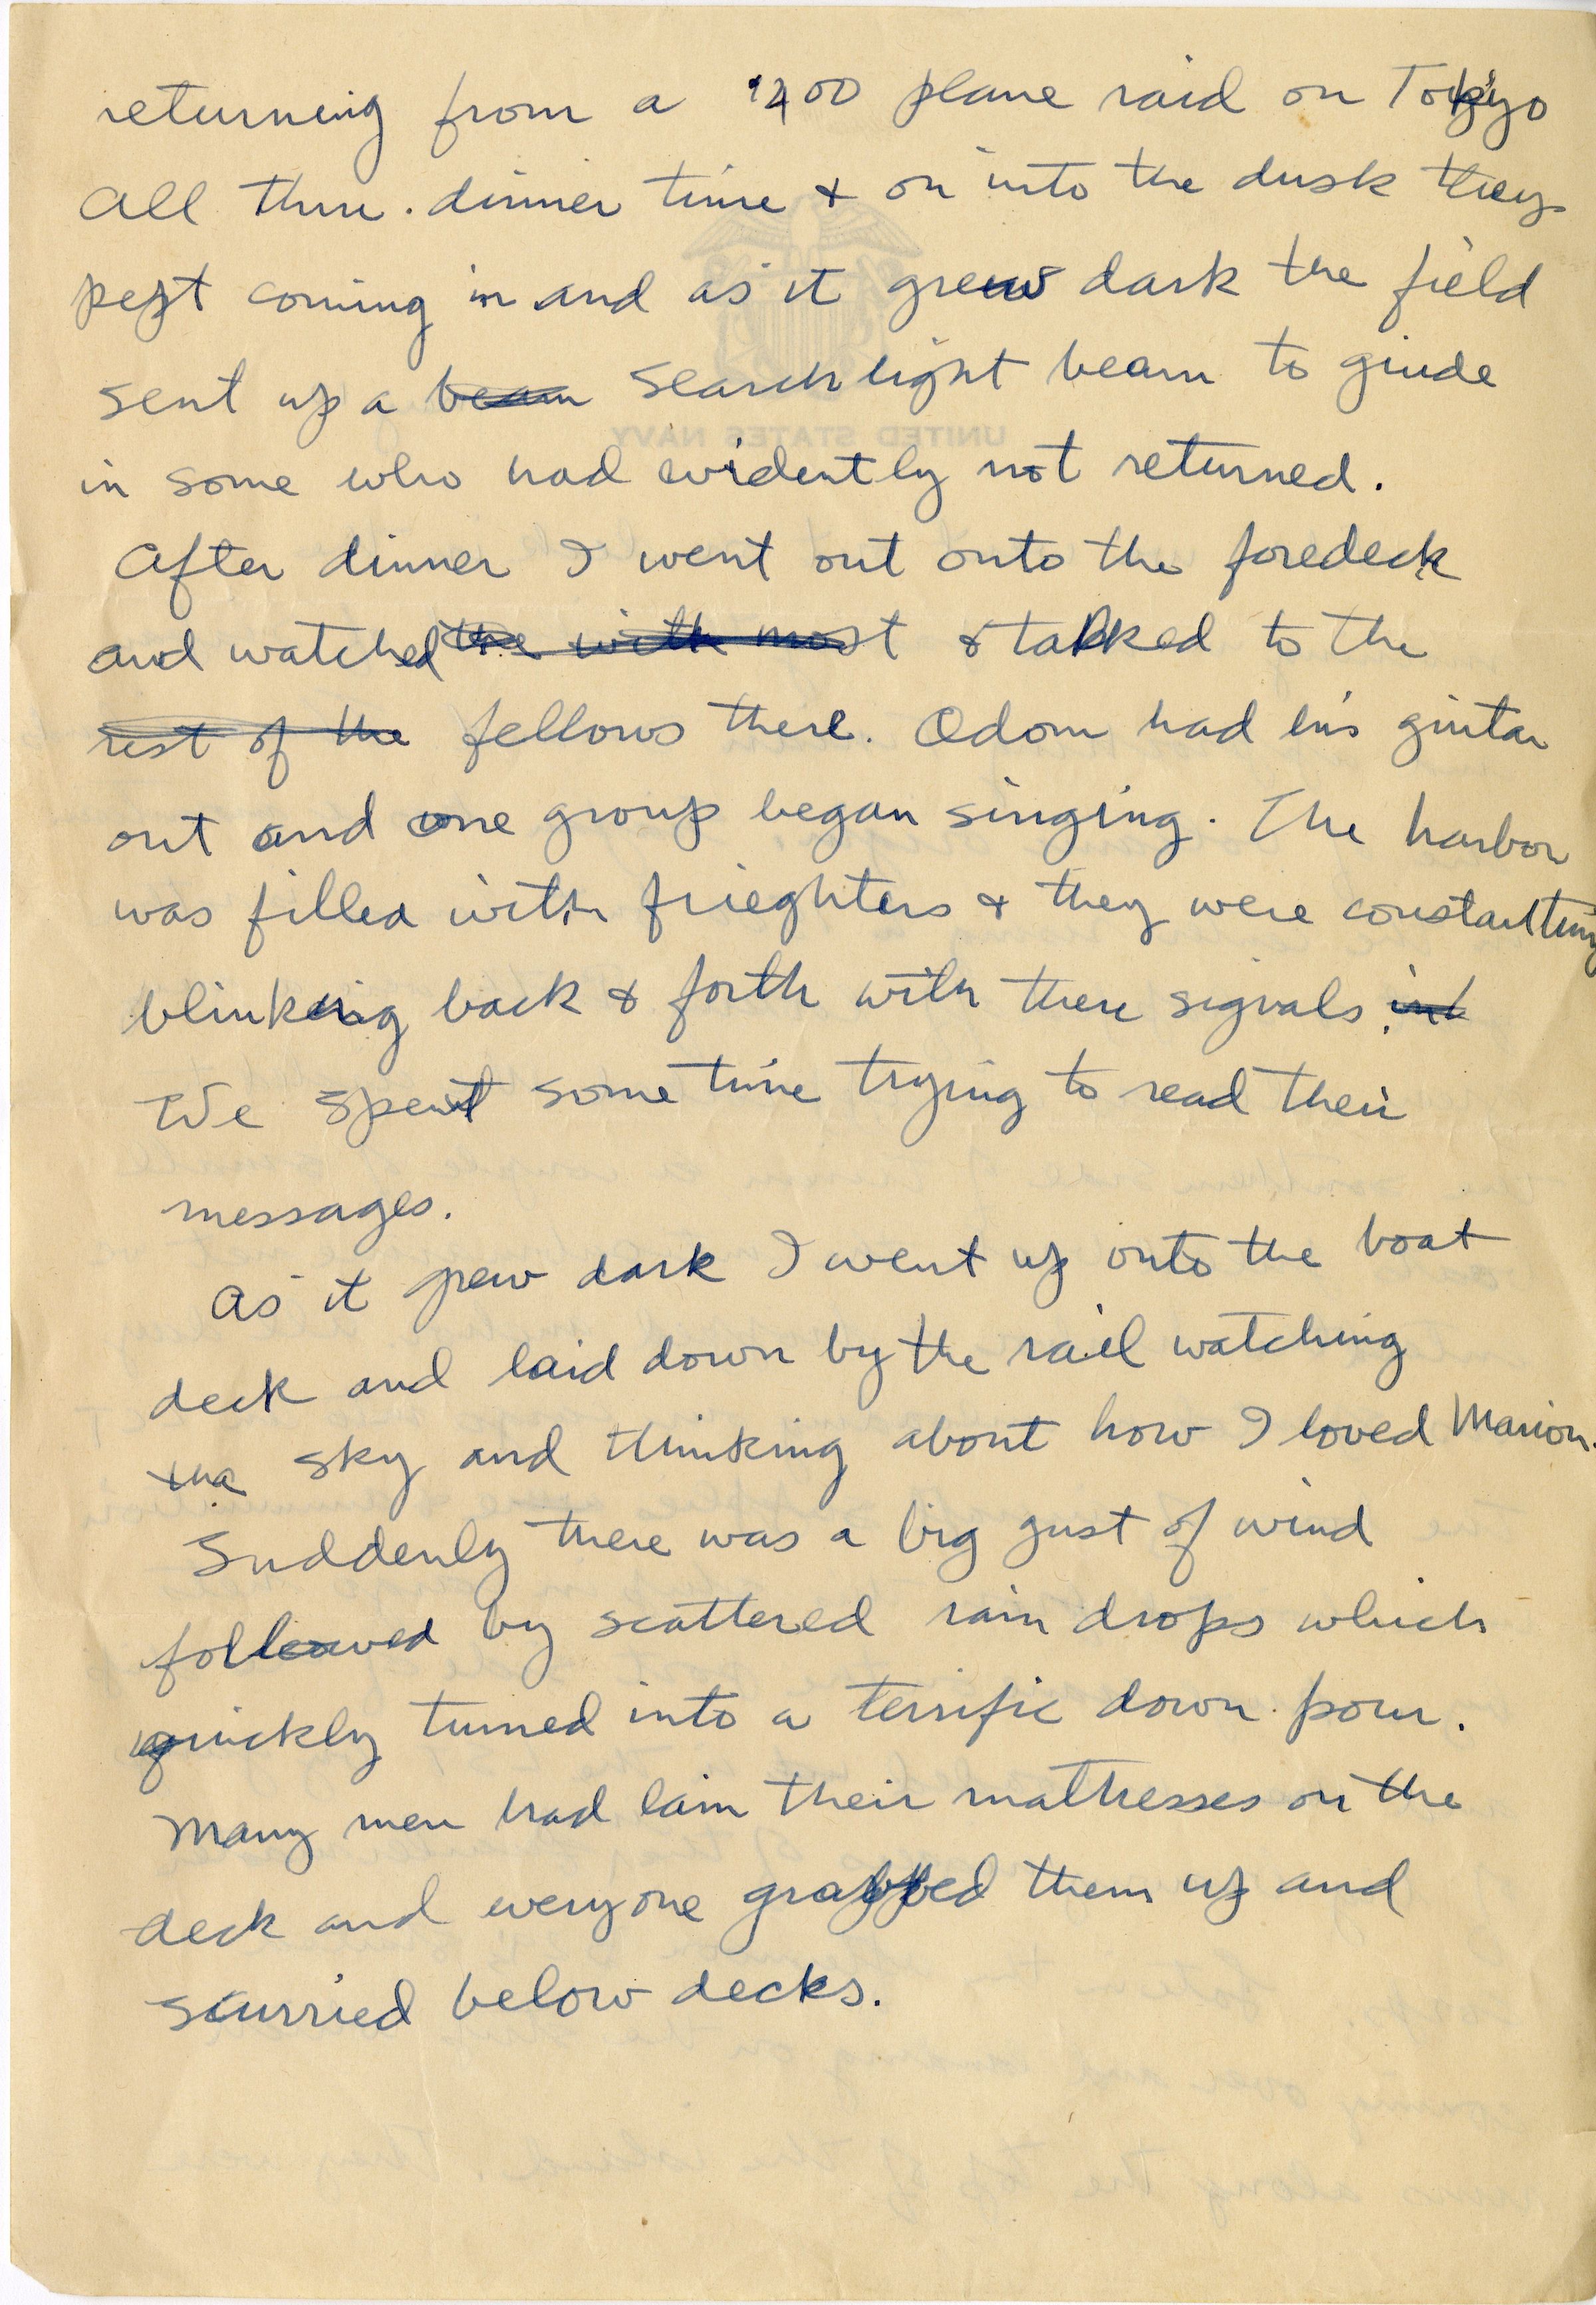 returning from a 1200 plane raid on Tokyo
All thru. dinner time & on into the dusk they
kept coming in and as it grew dark the field
sent up a ~~beam~~ searchlight beam to giude
in some who had evidently not returned.
After dinner I went out onto the foredeck
and watched ~~the with most~~ & talked to the
~~rest of the~~ fellows there. Odom had his giutar
out and one group began singing. The harbor
was filled with frieghters & they were constantly
blinking back & forth with there signals. ~~int~~
We spent some time trying to read their
messages.
As it grew dark I went up onto the boat
deck and laid down by the rail watching
the sky and thinking about how I loved Marion.
Suddenly there was a big gust of wind
followed by scattered rain drops which
quickly turned into a terrific down pour.
Many men had lain their mattresses on the
deck and everyone grabbed them up and
scurried below decks.
UNITED STATES NAVY